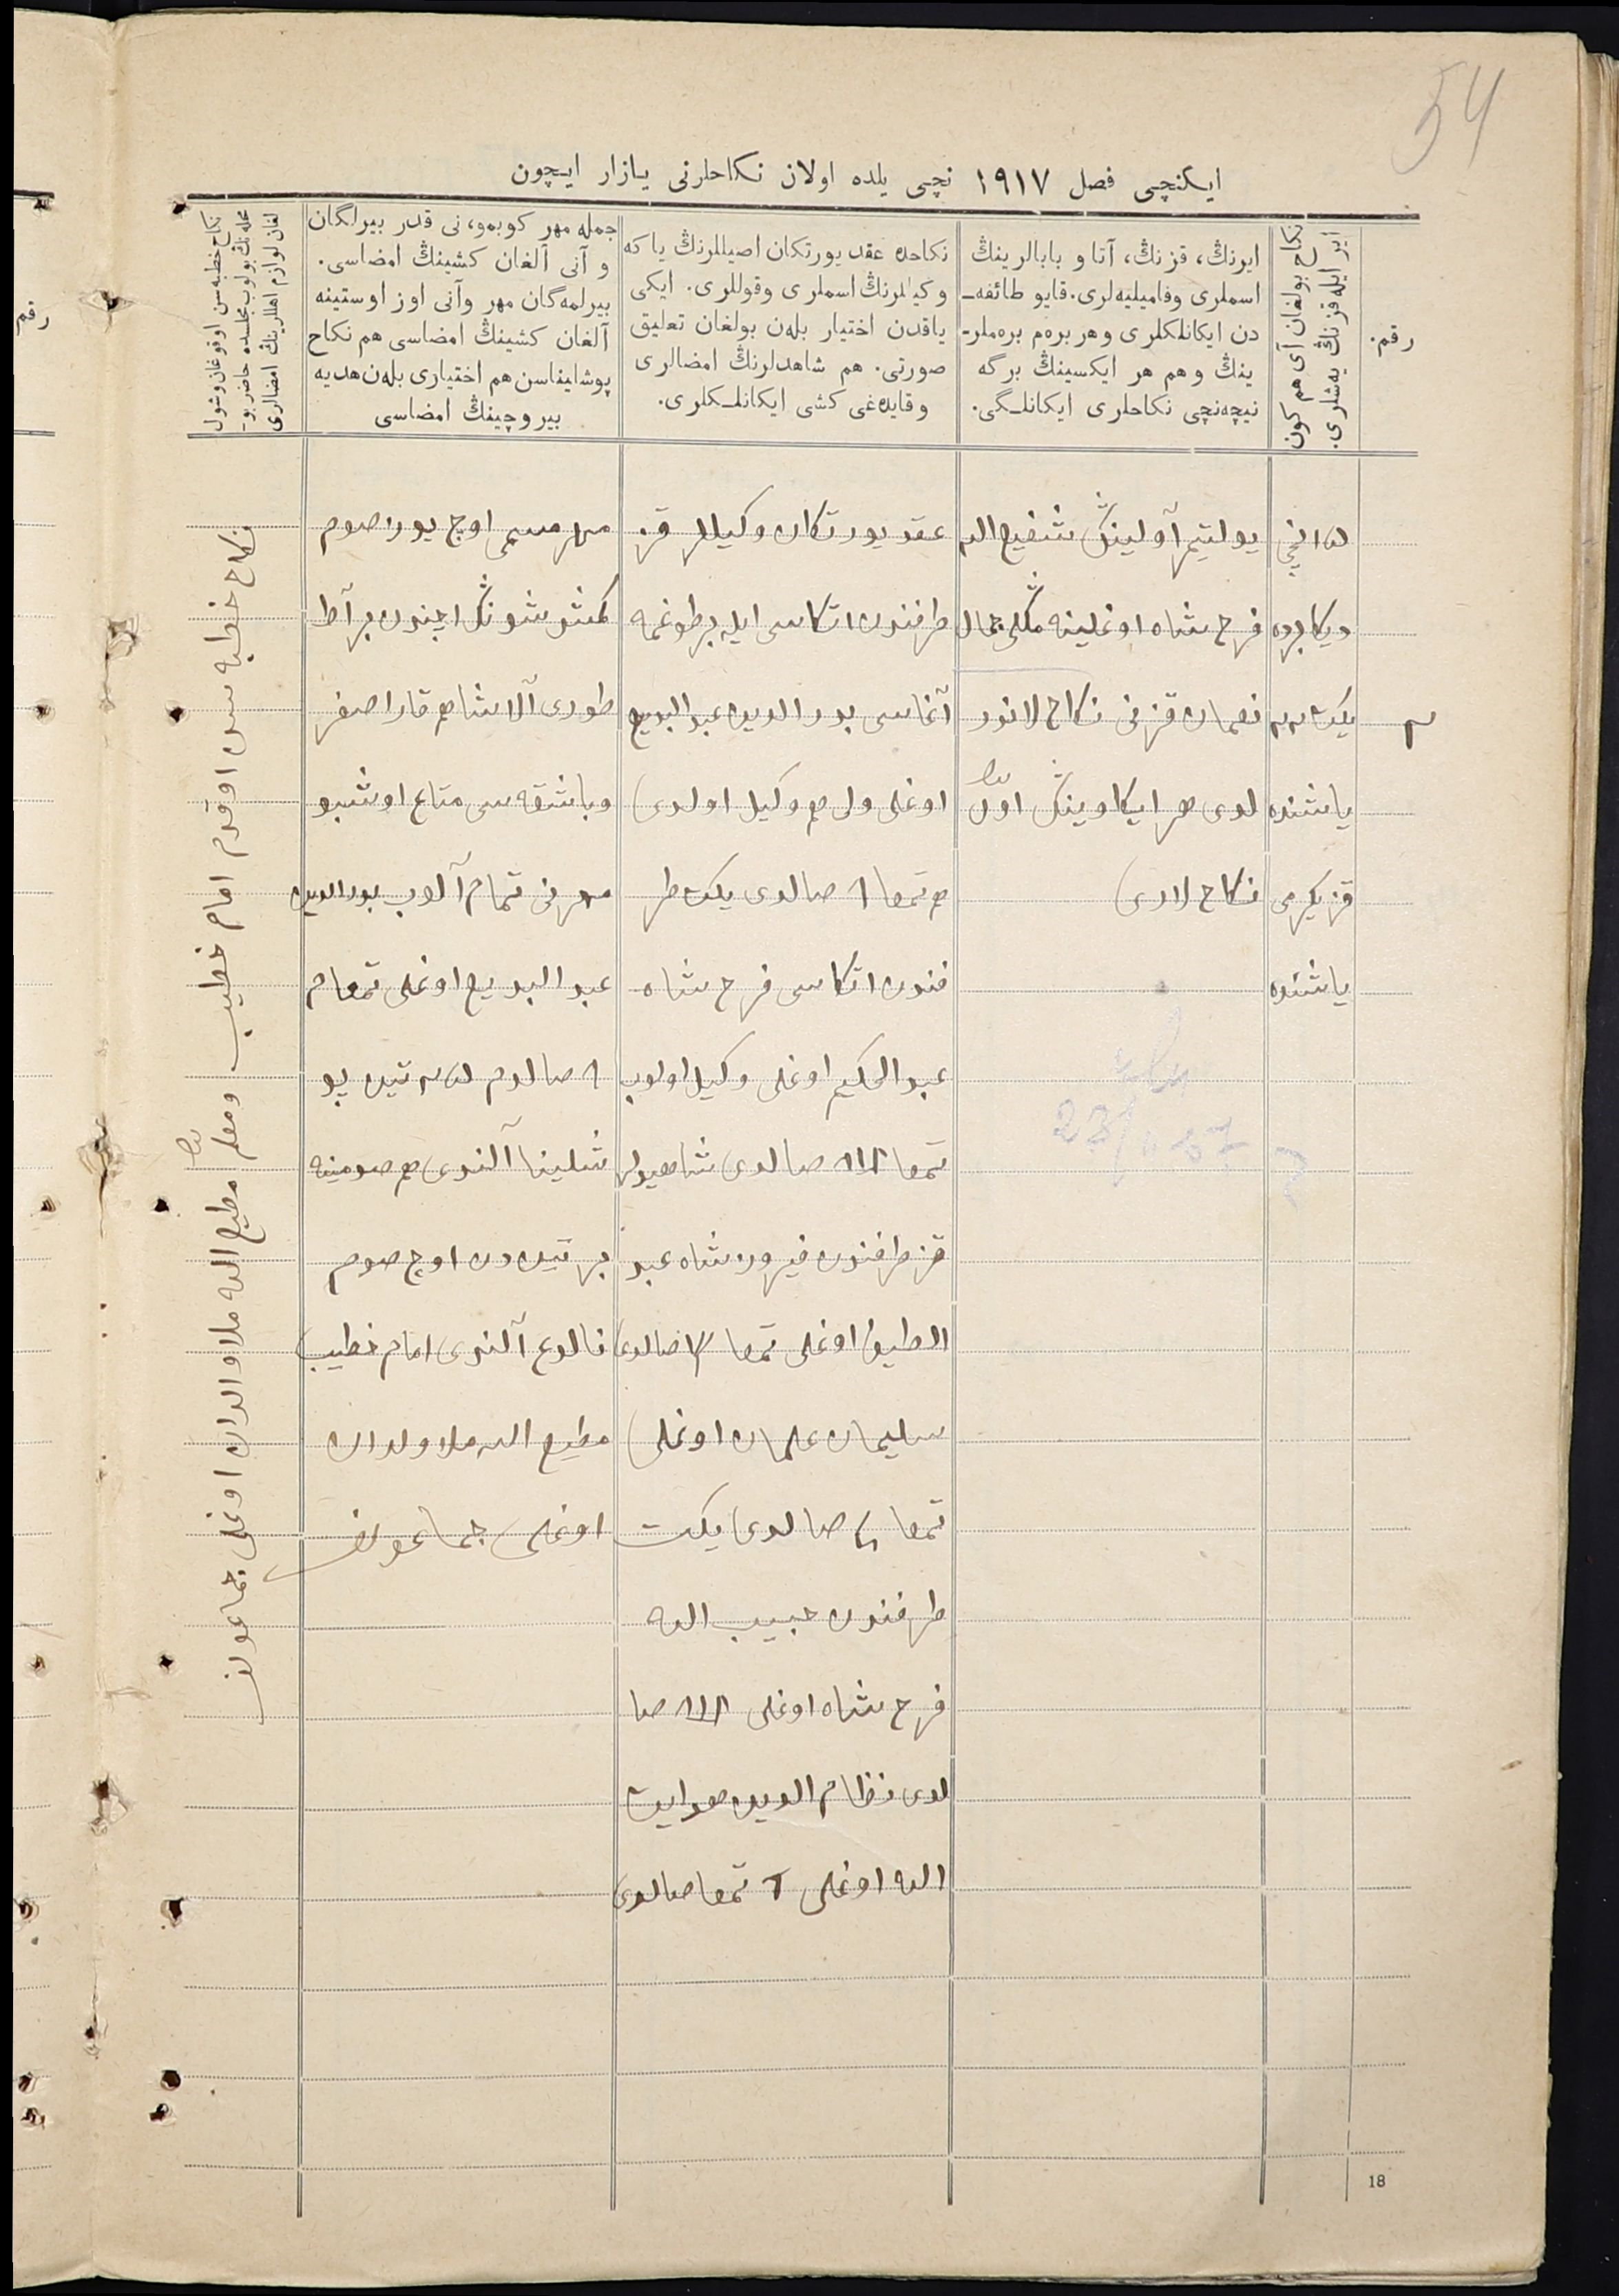 54
ایکنچی فصل ١٩١٧ نچی یلده اولان نکاحلرنی یازار ایچون
رقم.
نکاح بولغان آی هم کون
ایر ایله قزنڭ یه‌شلری.
ایرنڭ، قزنڭ، آتا و بابالرینڭ
اسملری وفامیلیه‌لری. قایو طائفه‌ـ
دن ایکانلکلری و هر بره‌م بره‌ملرـ
ینڭ و هم هر ایکسینڭ برگه
نیچه‌نچی نکاحلری ایکانلـگی.
نکاحده عقد یورتکان اصیللرنڭ یا که
وکیللرنڭ اسملری وقوللری. ایکی
یاقدن اختیار بله‌ن بولغان تعلیق
صورتی. هم شاهدلرنڭ امضالری
وقایده‌غی کشی ایکانلـکلری.
جمله مهر کوبمو، نی قدر بیرلگان
و آنی آلغان کشینڭ امضاسی.
بیرلمه‌گان مهر وآنی اوز اوستینه
آلغان کشینڭ امضاسی هم نکاح
پوشلیناسن هم اختیاری بله‌ن هدیه
بیروچینڭ امضاسی
نکاح خطبه‌سن اوقوغان وشول
محله‌نڭ بولوب مجلسده حاضر بوـ
لغان لوازم اهللرینڭ امضالری
دیکابرده
یکت
یاشنده
قز یکرمی
یاشنده
یولتیمر آولینڭ شفیع الله
فرح شاه اوغلینه مڭلی جمال
نعمان قزنی نکاح لاندر
لدی هر ایکاوینڭ اول
نکاح لاری
عقد یورتکان وکیللر قز
طرفندن اتکاسی ایله برطوغمه
آغاسی بدرالدین عبدالبدیع
اوغلی ولی هم وکیل اولدی
هم تمغا صالدی یکت طر
فندن اتکاسی فرح شاه
عبدالحکیم اوغلی وکیل اولوب
تمغا صالدی شاهدلر
قز طرفندن فیروزشاه عبد
اللطیف اوغلی تمغا صالدی
سلیمان علمان اوغلی
تمغا صالدی یکت
طرفندن حبیب الله
فرح شاه اوغلی صا
لدی نظام الدین هدایت
الله اوغلی تمغا صالدی
مهر مسمی اوچ یوز صوم
کمش شونڭ ایچندن بر آط
طوری آلاشا هم قارا صغر
وباشقه سی متاع اوشبو
مهرنی تمام آلوب بدرالدین
عبدالبدیع اوغلی تمغام
صالدم تین پو
شلینا آلندی هم صومینه
بر تین دن اوچ صوم
نالوغ آلندی امام خطیب
مطیع الله ملا ولدان
اوغلی جماعوف
نکاح خطبه سن اوقدم امام خطیب ومعلم مطیع الله ملا ولدان اوغلی جماعوف
18